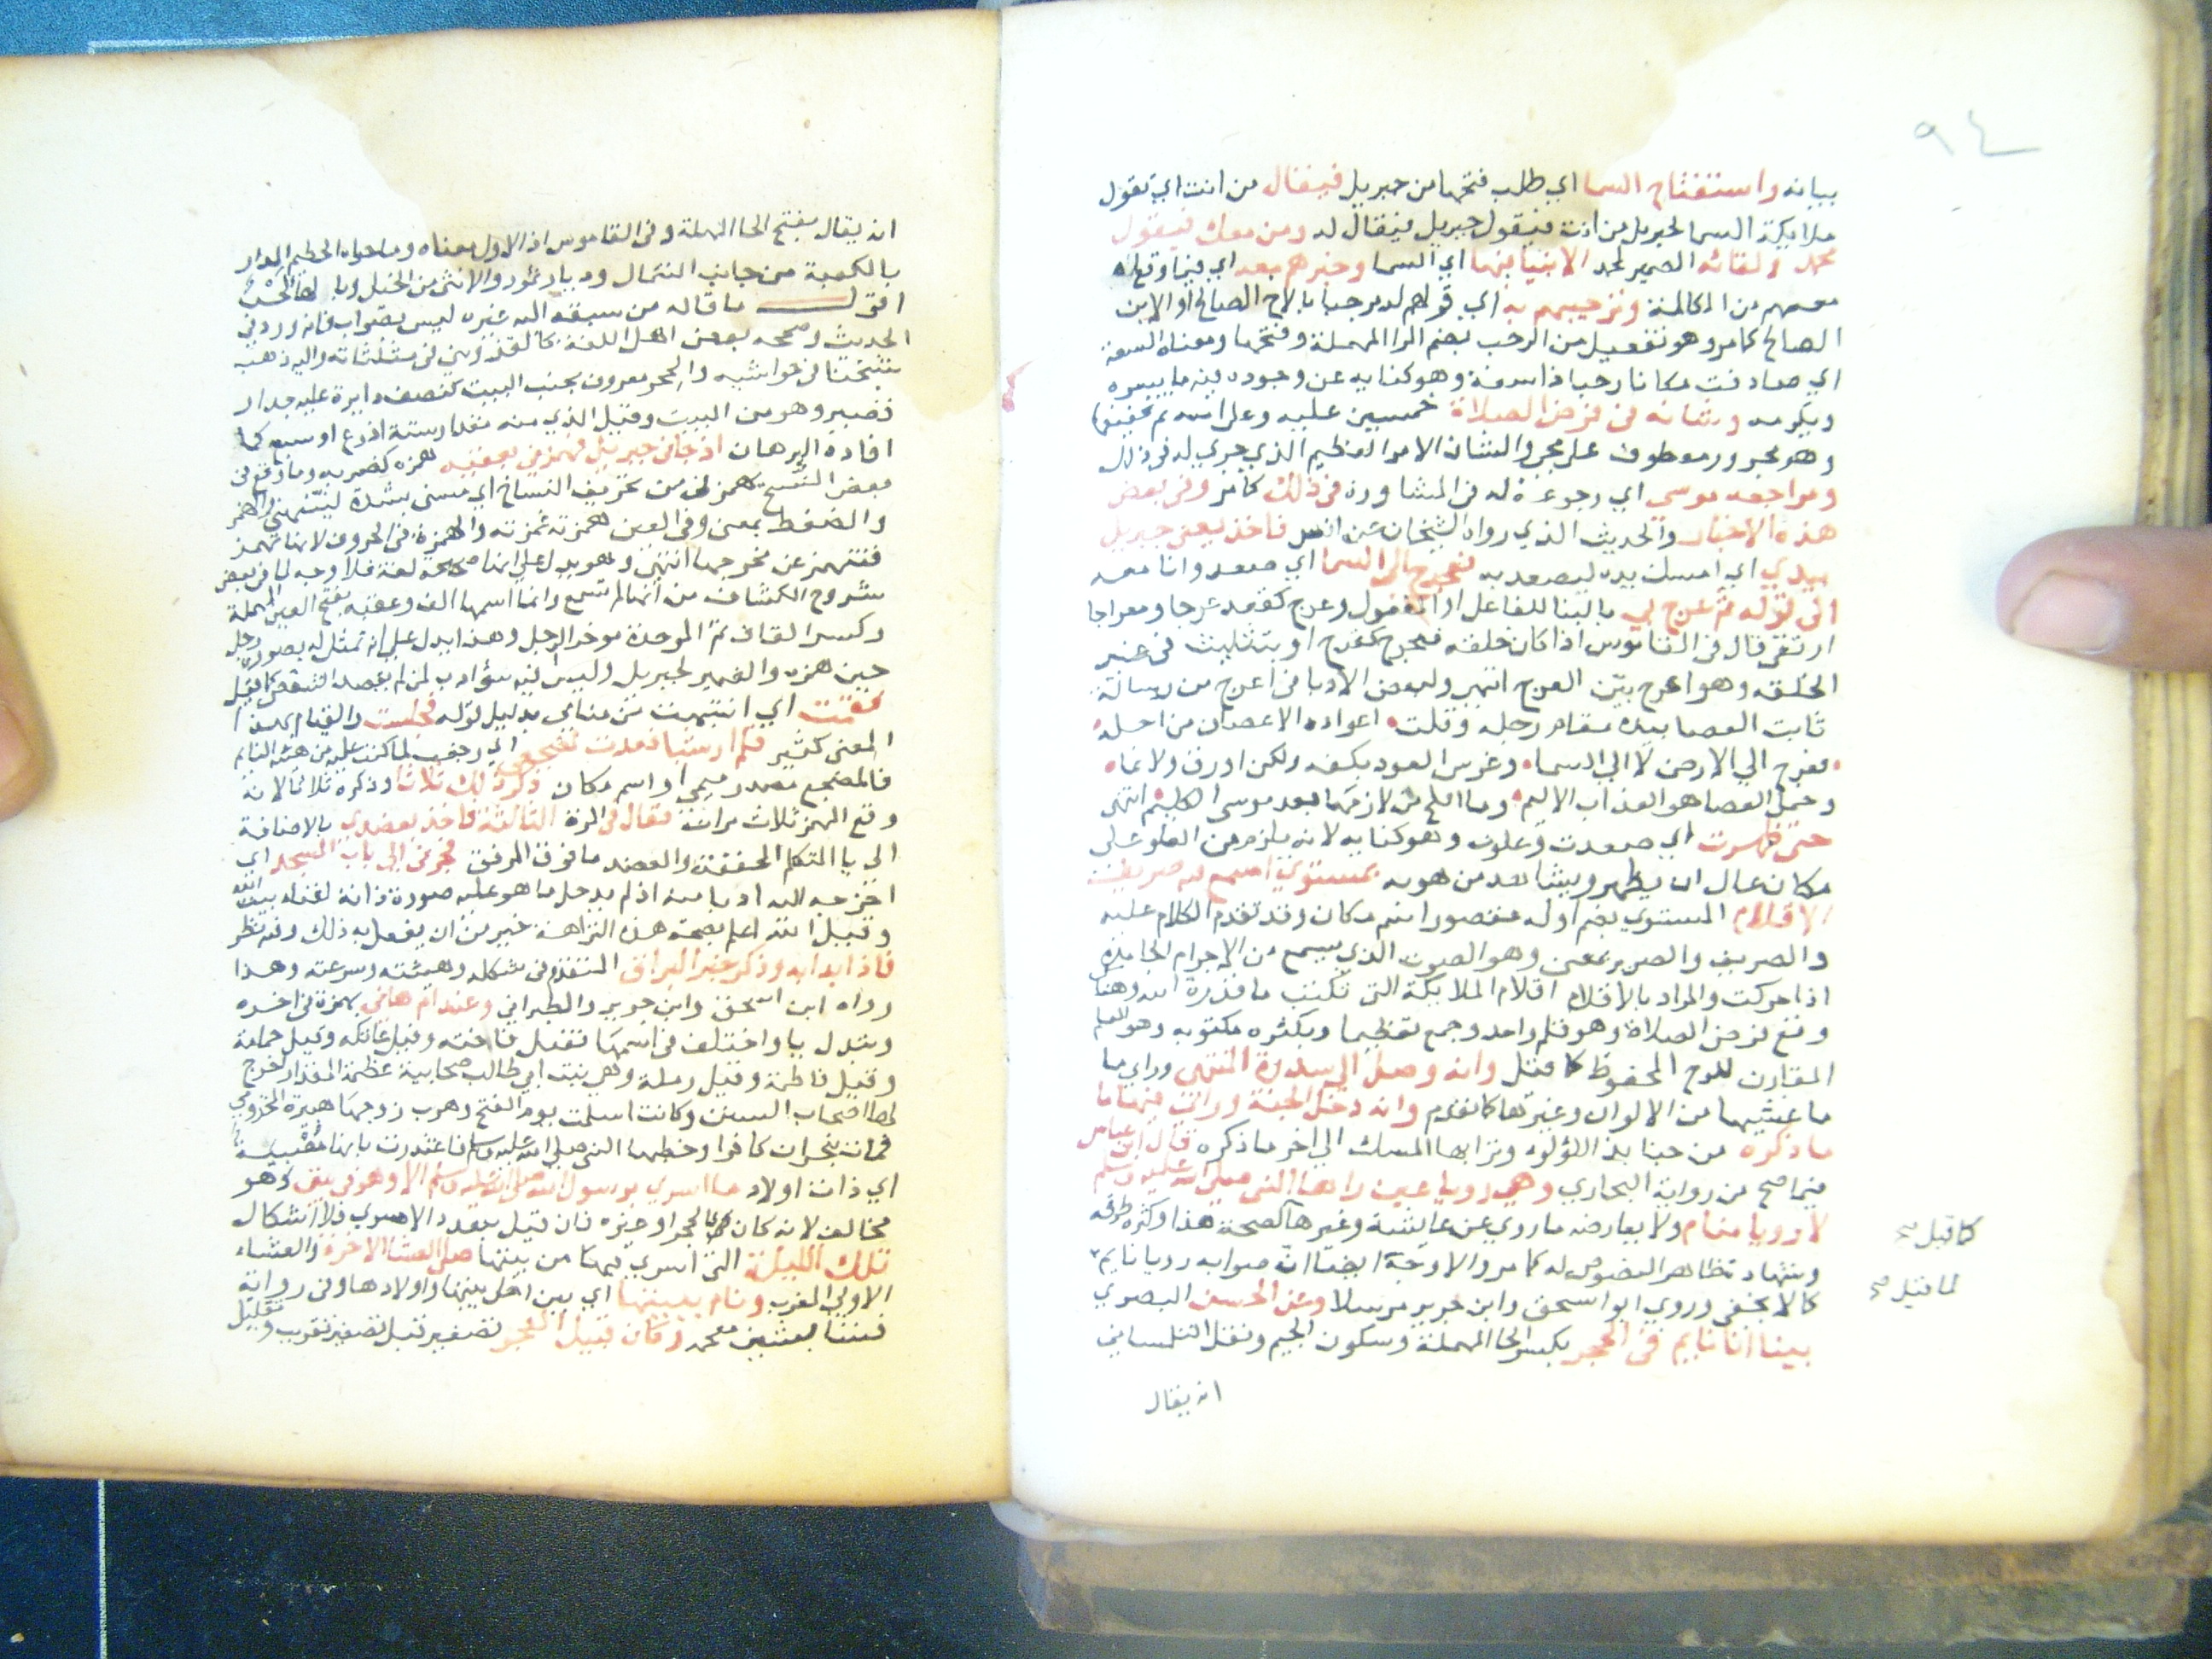 ٩٤
بيانه واستفتاح السما اي طلب فتحها من جبريل فيقال من انت اي تقول
ملايكة السما لجبريل من انت فيقول جبريل فيقال له ومن معك فيقول
محمد ولقائه الضمير لمحمد الانبيا فيها اي السما وخبرهم معه اي فيما وقع له
معهم من المكالمة وترحيبهم به اي قولهم له مرحبا بالاخ الصالح او الابن
الصالح كما مر وهو تفعيل من الرحب بضم الرا المهملة وفتحها ومعناه السعة
اي صادفت مكانا رحبا ذا سعة وهو كناية عن وجوده فيه ما يسره
ويكرمه وشانه في فرض الصلاة خمسين عليه وعلى امته ثم تخفيفها
وهو مجرور معطوف على مجرور والشان الامر العظيم الذي جري له في ذلك
ومراجعه موسى اي رجوعه له في المشاورة في ذلك كما مر وفي بعض
هذه الاخبار والحديث الذي رواه الشيخان عن انس فاخذ يعني جبريل
بيدي اي امسك بيده ليصعد به فعرج الى السما اي صعد وانا معه
الى قوله ثم عرج بي بالبنا للفاعل او المفعول وعرج كقعد عرجا ومعراجا
ارتقى قال في القاموس اذا كان خلقه فعرج كفرح او بتثليث في غير
الخلقه وهو اعرج بين العرج انتهى ولبعض الادبا في اعرج من رسالة
ثابت العصا بيده مقام رجله وقلت اعواده الاغصان من اصله
يعرج الي الارض لا الي السماء وغرس العود بكفه ولكن اورق ولا نماه
وحمل العصا هو العذاب الاليم وما لازمها بعد موسى الكليم انتهى
حتى ظهرت اي صعدت وعلوت وهو كناية لانه يلزم من العلو على
مكان عال ان يظهر ويشاهد من هو به بمستوي اسمع فيه صريف
الاقلام المستوي بضم اوله مقصور اسم مكان وقد تقدم الكلام عليه
والصريف والصرير بمعنى وهو الصوت الذي يسمع من الاجرام الجامدة
اذا حركت والمراد بالاقلام اقلام الملايكة التي تكتب ما قدره الله وهنا
وقع فرض الصلاة وهو قلم واحد وجمع تعظيما وبكثره مكتوبه وهو القلم
المقارن للوح المحفوظ كما قيل وانه وصل الي سدرة المنتهى وراي ما
ما غشيها من الالوان وغيرها كما تقدم وانه دخل الجنة وراي فيها ما
ما ذكره من جنابذ اللؤلؤ وترابها المسك الي اخر ما ذكره قال ابن عباس
فيما صح من رواية البخاري وهي رويا عين راها النبي صلى الله عليه وسلم
لا رويا منام ولا يعارضه ما روي عن عايشة وغيرها لصحة هذا وكثرة طرقه
وشهادة ظاهر النصوص له كما مر والاوجه ايضا ان صوابه رويا نايم
كما لا يخفى وروي ابو اسحق وابن جرير مرسلا وعن الحسن البصري
بينا انا نايم في الحجر بكسر الحا المهملة وسكون الجيم ونقل التلمساني
كما قيل صح
لما قيل صح
انه يقال
انه يقال بفتح الحا المهملة وفي القاموس اذ الاول معناه وما حواه الحطيم المدار
بالكعبة من جانب الشمال وديار ثمود والانثى من الخيل وبالهاء لحن
اقول ما قاله من سبقه اليه غيره ليس بصواب فانه ورد في
الحديث وصححه بعض اهل اللغة كالقزويني في مثلثاته واليه ذهب
شيخنا في حواشيه والحجر معروف بجنب البيت كنصف دايرة عليه جدار
قصير وهو من البيت وقيل الذي منه مقدار ستة اذرع او سبع كما
افاده البرهان اذ جاني جبريل فهمزني بعقبه همزه كضربه وما وقع في
بعض النسخ فهمزني من تحريف النساخ اي مسني بشدة لينبهني والهمز
والضغط بمعنى وفي العين همزته غمزته والهمزة في الحروف لانها تهمز
فتنهمز عن مخرجها انتهى وهو يدل على انها صحيحة لغة فلا وجه لما في بعض
شروح الكشاف من انها لم تسمع وانما اسمها الف وعقبه بفتح العين المهملة
وكسر القاف ثم الموحدة موخر الرجل وهذا يدل على انه تمثل له بصورة رجل
حين همزه والضمير لجبريل وليس فيه سؤ ادب لمن لم يقصد النقص كما قيل
فقمت اي انتبهت من منامي بدليل قوله فجلست والقيام بهذا
المعنى كثير فلم ار شيا فعدت لمضجعي اي رجعت لما كنت عليه من هيئة النايم
فالمضجع مصدر ميمي او اسم مكان وذكر ذلك ثلاثا وذكره ثلاثا لانه
وقع الهمز ثلاث مرات فقال في المرة الثالثة فاخذ بعضدي بالاضافة
الي يا المتكلم المخففة والعضد ما فوق المرفق فجرني الي باب المسجد اي
اخرجه اليه ادبا منه اذ لم يدخل ما هو على صورة دابة لغزله بيت الله
وقيل الله اعلم بصحة هذه النزاهة غير من ان يفعل به ذلك وفيه نظر
فاذا بدابه وذكر خبر البراق المتقدم في شكله وهيئته وسرعته وهذا
رواه ابن اسحق وابن جرير والطبراني وعند ام هاني بهمزة في اخره
وتبدل يا واختلف في اسمها فقيل فاخته وقيل عاتكه وقيل جمانة
وقيل فاطمة وقيل رملة وهي بنت ابي طالب صحابية عظيمة المقدار اخرج
لها اصحاب السنن وكانت اسلمت يوم الفتح وهرب زوجها هبيرة المخزومي
فمات بنجران كافرا وخطبها النبي صلى الله عليه وسلم فاعتذرت بانها مصبية
اي ذات اولاد ما اسري برسول الله صلى الله عليه وسلم الا وهو في بيتي وهو
مخالف لانه كان في الحجر او حيزه فان قيل بتعدد الاسري فلا اشكال
تلك الليلة التي اسري فيها من بيتها صلى العشا الاخرة والعشاء
الاولي المغرب ونام بيننا اي بين اهل بيتها واولادها وفي رواية
فبتنا بمعنى معه وكان قبيل الفجر تصغير قبل تصغير تقريب وتقليل